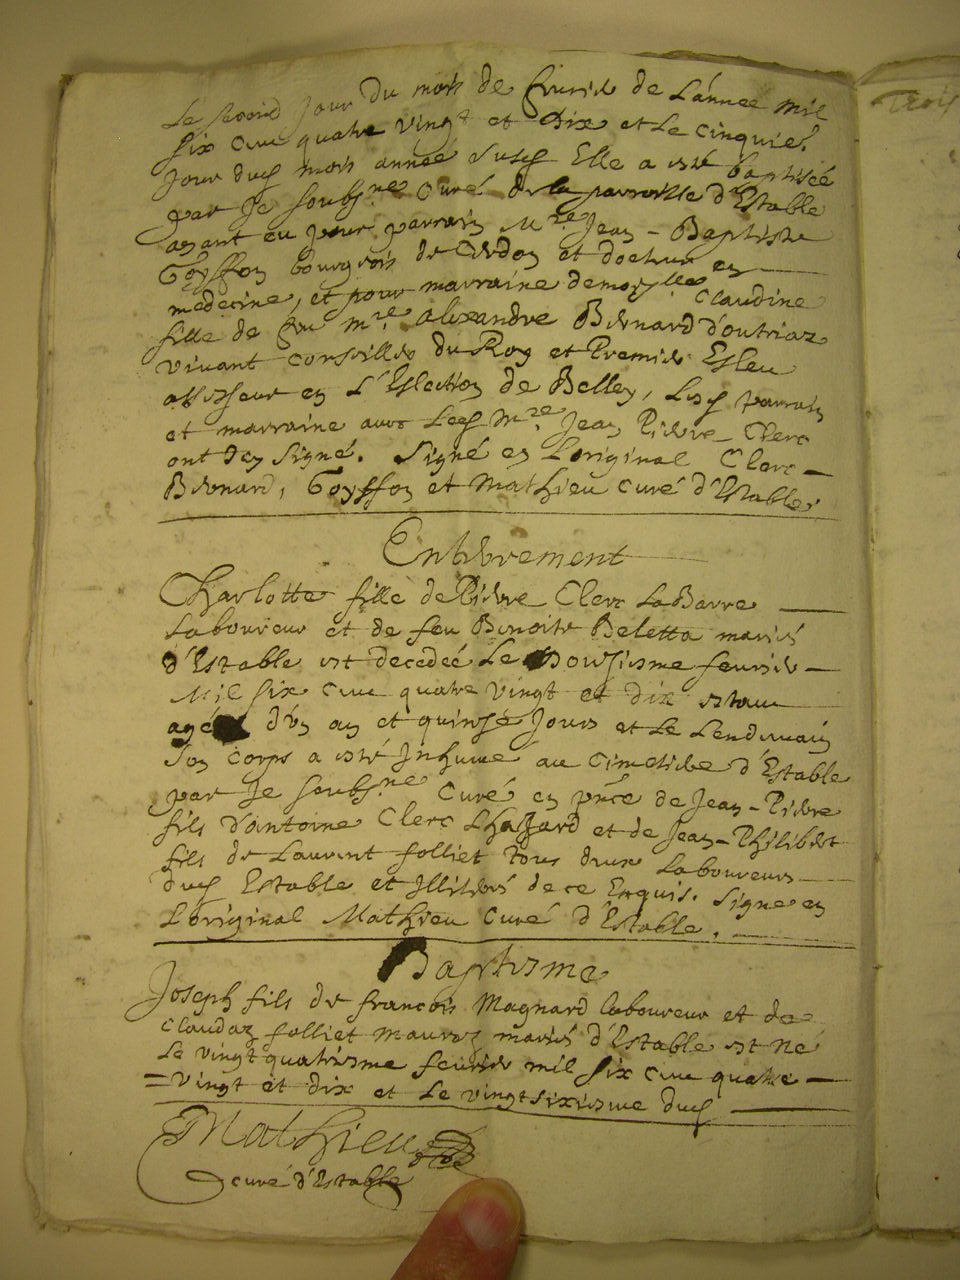 Le second Jour Du mois de feurier de Lannee mil
six cens quatre vingt et dix et Le cinquie.
Jour dud mois année susd Elle a esté baptiseé
par Je soubs.ne Curé de la parroisse d'Estable
ayant eu pour parrain M.re Jean - Baptiste
Goyffon bourgeois de Cerdon et docteur en
medecine, et pour marraine demoy.lle Claudine
fille de feu m.re Alexandre Bernard d'outriaz
viuant conseiller du Roy et Premier Esleu
assesseur en L'Eslection de Belley, Lesd parrain
et marraine auec Led M.re Jean Pierre Clerc
ont Icy signé. Signé en Loriginal Clerc
Bernard, Goyffon et Mathieu curé d'Estable.
Enterrement
Charlotte fille de Pierre Clerc LaBarre
Laboureur et de feu Benoite Beletta mariés
d'Estable est decedeé Le Douziesme feurier
Mil six cens quatre vingt et dix estant
ageé d'un an et quinze Jours et Le Lendemain
son corps a esté Inhumé au cimetiere d'Estable
par Je soubs.ne Curé en pnce de Jean - Pierre
fils d'antoine Clerc Lhazard et de Jean - Philibert
fils de Laurent folliet tous deux Laboureurs
dud Estable et Illiterés de ce Enquis. Signé en
Loriginal Mathieu Curé d'Estable.
Baptesme
Joseph fils de francois Magnard laboureur et de
Claudaz folliet mariés d'Estable est Né
Le vingt quatriesme feurier mil six cens quatre
= vingt et dix et Le vingtsixiesme dud
Mathieu
curé d'Estable
Trois